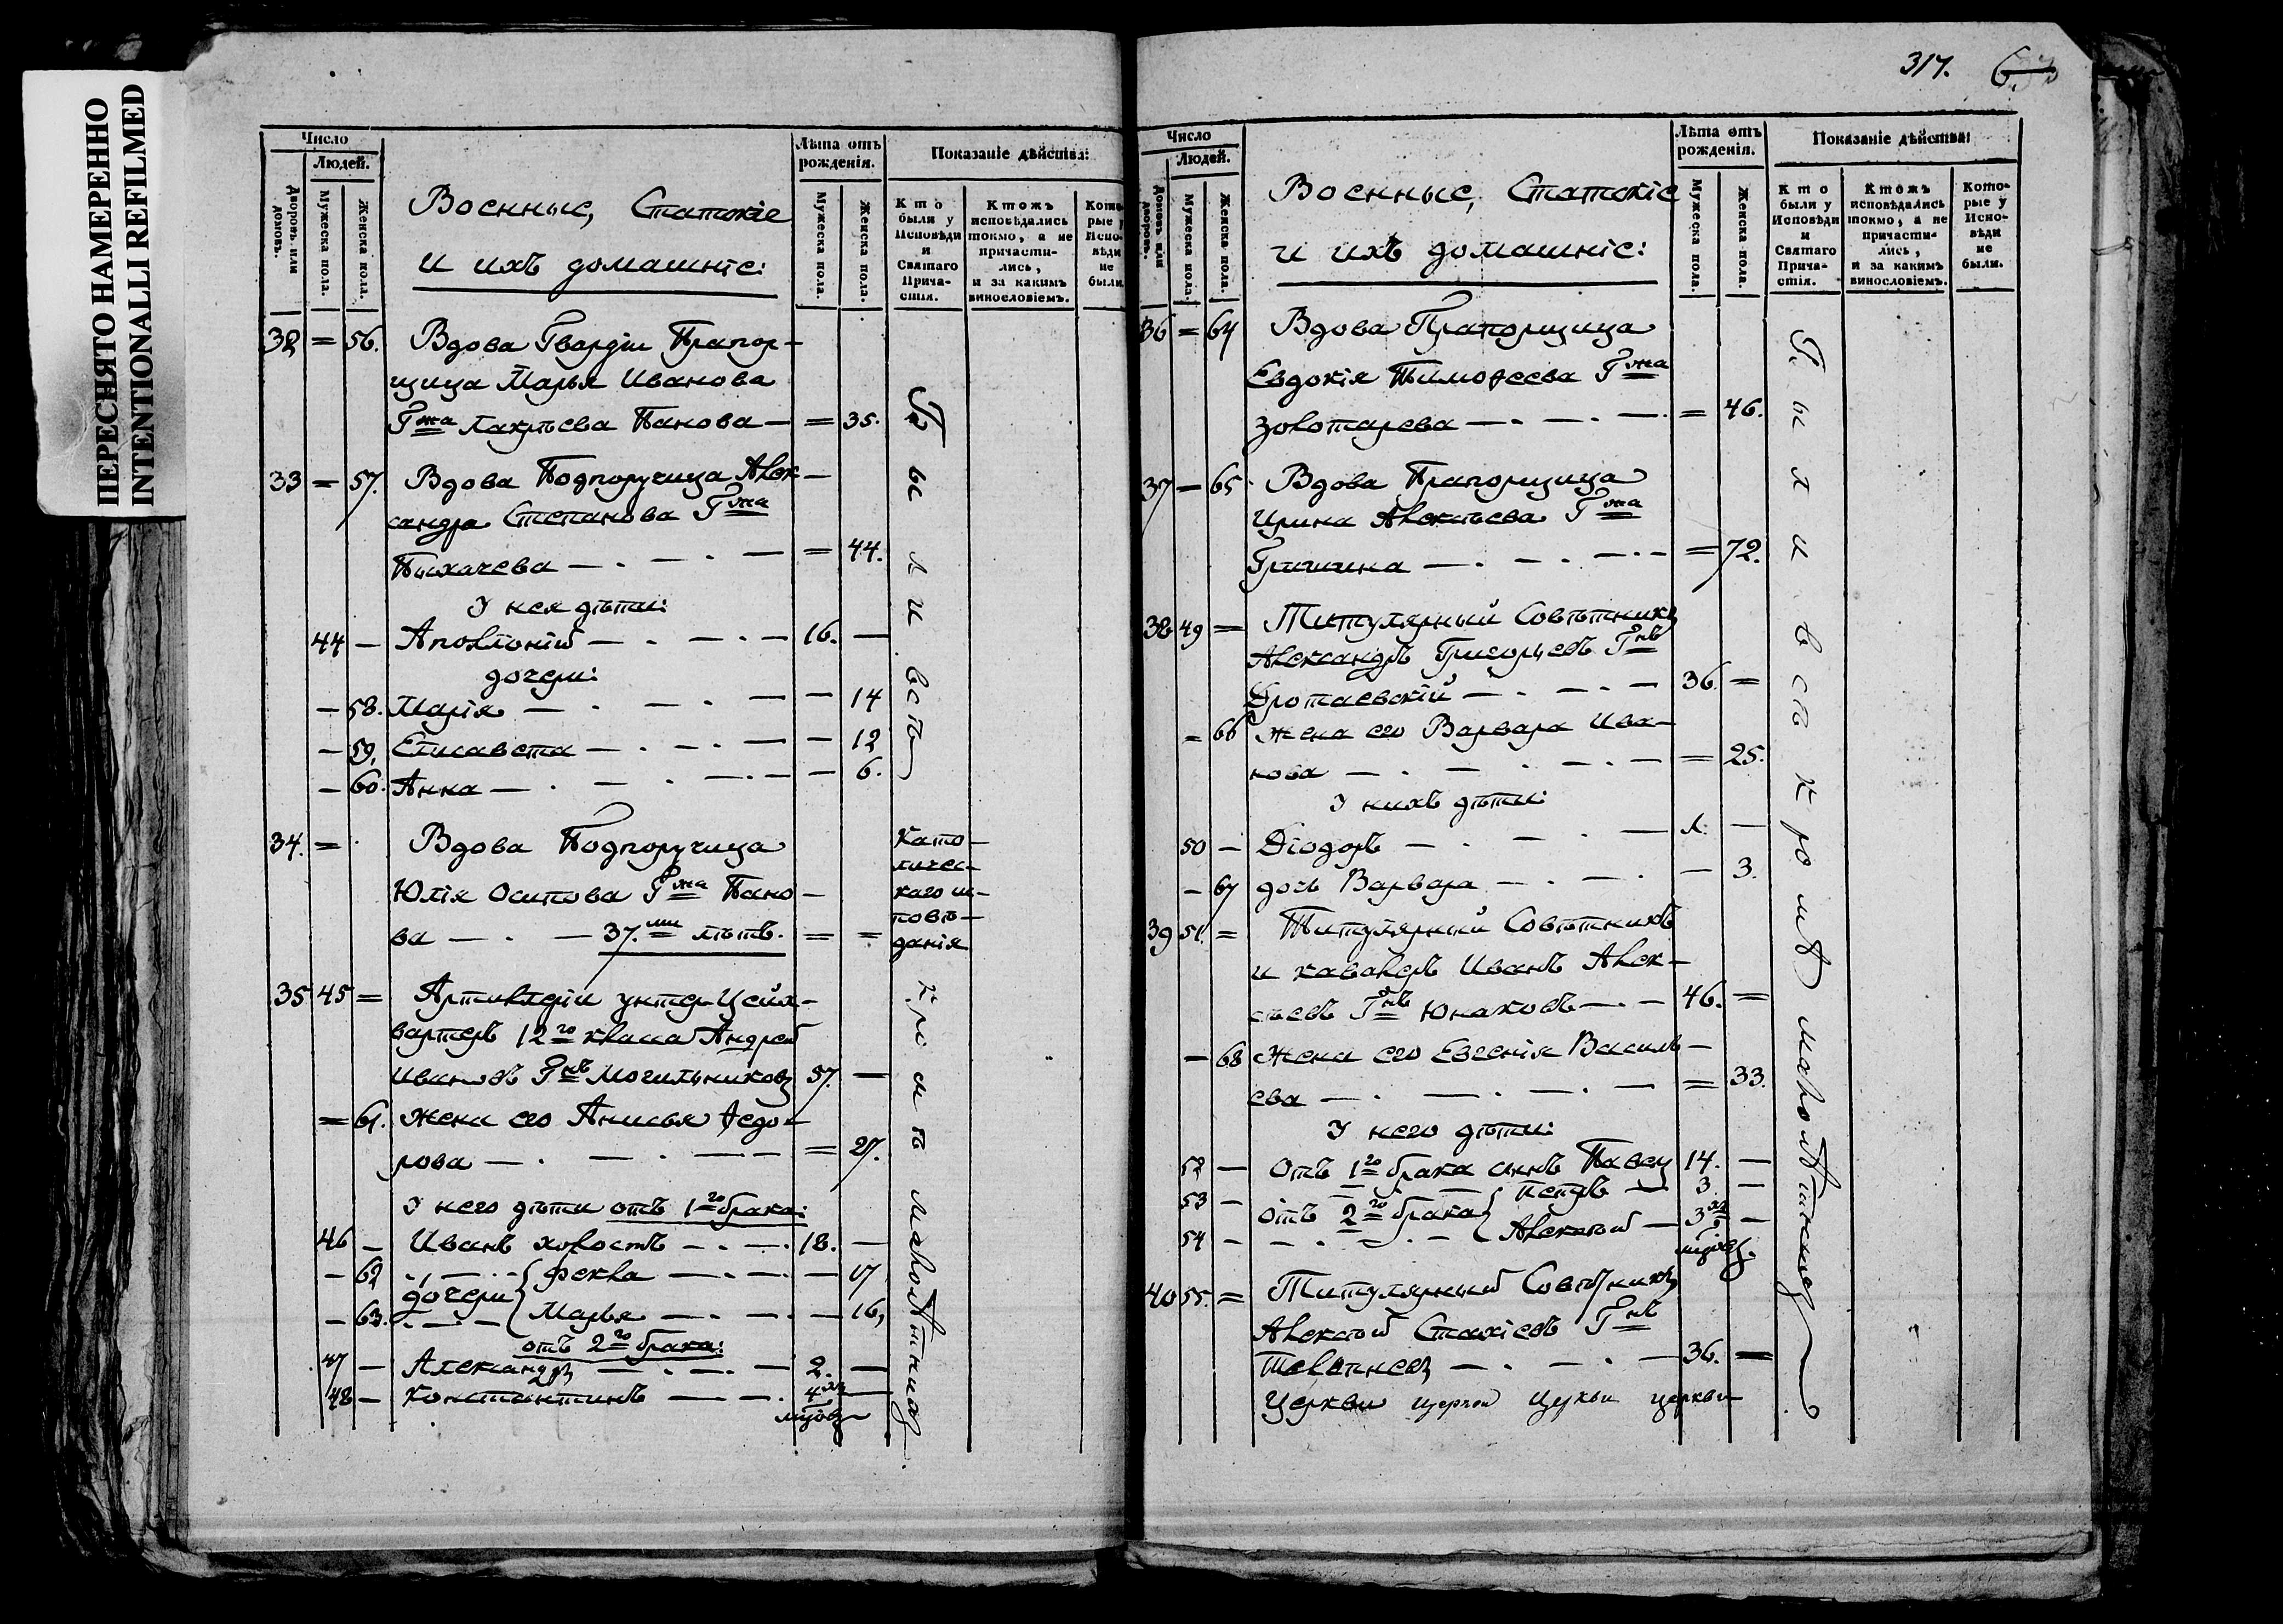 ПЕРЕСНЯТО НАМЕРЕННО
INTENTIONALLI REFILMED
Число
Людей.
Дворовъ или домовъ.
Мужеска пола.
Женска пола.
Военные, Статскіе
и ихъ домашніе:
Лѣта отъ
рожденія.
Мужеска пола.
Женска пола.
Показаніе дѣйства:
Кто
были у
Исповѣди
и
Святаго
Прича-
стія.
Ктожъ
исповѣдались
токмо, а не
причасти-
лись,
и за какимъ
винословіемъ.
Кото
рые у
Испо-
вѣди
не
были.
32 = 56. Вдова Гвардіи Прапор-
щица Марья Иванова
Гжа Лакрѣева Панова — = 35.
33 = 57. Вдова Подпоручица Алек-
сандра Степанова Гжа
Пыхачева — . — . — = 44.
У нея дѣти:
44 — Аполлоній — . — . — 16. —
дочери:
— 58. Марія — . — . — — 14
— 59. Елисавета — . — . — — 12
— 60. Анна — . — . — . — — 6.
34. = Вдова Подпоручица
Юлія Осипова Гжа Пано-
ва — . — 37.ми лѣтъ. = =
Като-
личес-
каго ис-
повѣ-
данія
35 45 = Артиллеріи унтер-Цейх-
вартеръ 12го класса Андрей
Ивановъ Гнъ Могильниковъ 57. —
= 61. Жена его Анисья Ѳедо-
рова — . — . — — = 27.
У него дѣти отъ 1го брака:
46 — Иванъ холостъ — . — . 18. —
— 62 Ѳекла — . — . — — 17
дочери
— 63. Марья — . — . — — 16,
отъ 2го брака:
47 — Александръ — . — . — 2. —
48 — Константинъ — — . 4хъ —
мцовъ
Были всѣ
кромѣ малолѣтнихъ
317.
Число
Людей.
Домовъ или дворовъ.
Мужеска пола.
Женска пола.
Военные, Статскіе
и ихъ домашніе:
Лѣта отъ
рожденія.
Мужеска пола.
Женска пола.
Показаніе дѣйства:
Кто
были у
Исповѣди
и
Святаго
Прича-
стія.
Ктожъ
исповѣдались
токмо, а не
причасти-
лись,
и за какимъ
винословіемъ.
Кото-
рые у
Испо-
вѣди
не
были.
36 = 64 Вдова Прапорщица
Евдокія Тимоѳеева Гжа
Золотарева — . — . — . = 46.
37 — 65 Вдова Прапорщица
Ирина Алексѣева Гжа
Гришина — . — . — . — = 72.
38 49 = Титулярный Совѣтникъ
Александръ Григорьевъ Гнъ
Кротаевскій — . — . — 36. =
= 66 Жена его Варвара Ива-
нова — . — . — . — = 25.
У нихъ дѣти:
50 — Діодоръ — . — . — —
— 67 дочь Варвара — . — . — 3.
39 51. = Титулярный Совѣтникъ
и кавалеръ Иванъ Алек-
сѣевъ Гнъ Юнаковъ — . — 46. =
— 68 Жена его Евгенія Василь-
ева — . — . — . — = 33.
У него дѣти:
52 — Отъ 1го брака сынъ Павелъ 14. —
53 — Петръ — 3 —
отъ 2го брака
54 — Алексѣй — 3хъ —
мцовъ.
40 55. = Титулярный Совѣтникъ
Алексѣй Стахіевъ Гнъ
— . — . — 36. =
Церкви церкви Церкви церкви
Были всѣ кромѣ малолѣтнихъ